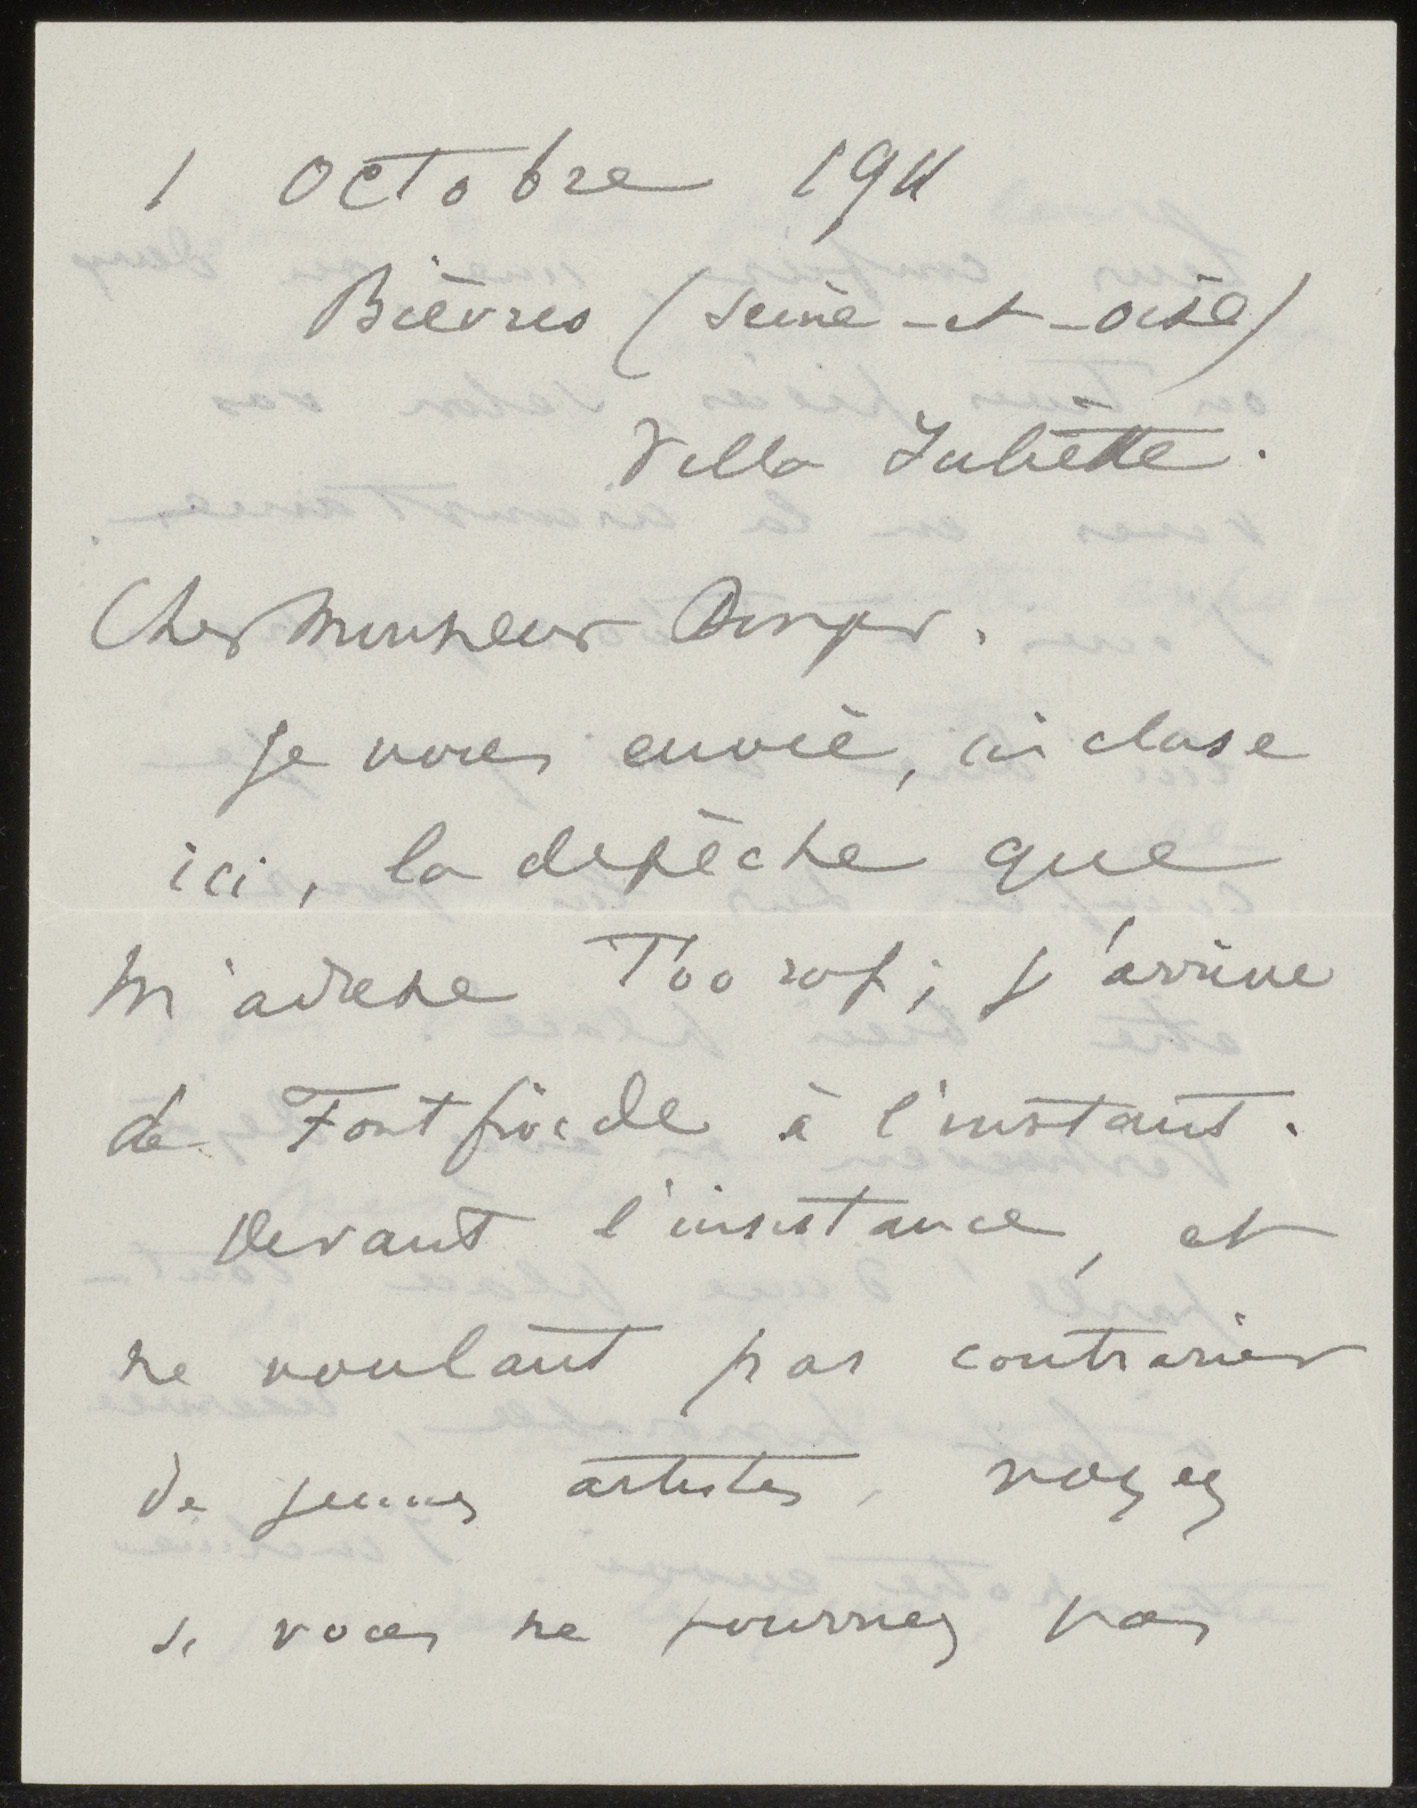 1 octobre 1911
Bièvres (Seine-et-Oise)
Villa Juliette.
Cher Monsieur Bonger.
Je vous envoie, inclose
ici, la depêche que
m'adresse Toorop; j'arrive
de Fontfroide à l'instant.
Devant l'insistance, et
ne voulant pas contrarier
de jeunes artistes, voyez
si vous ne pourriez pas